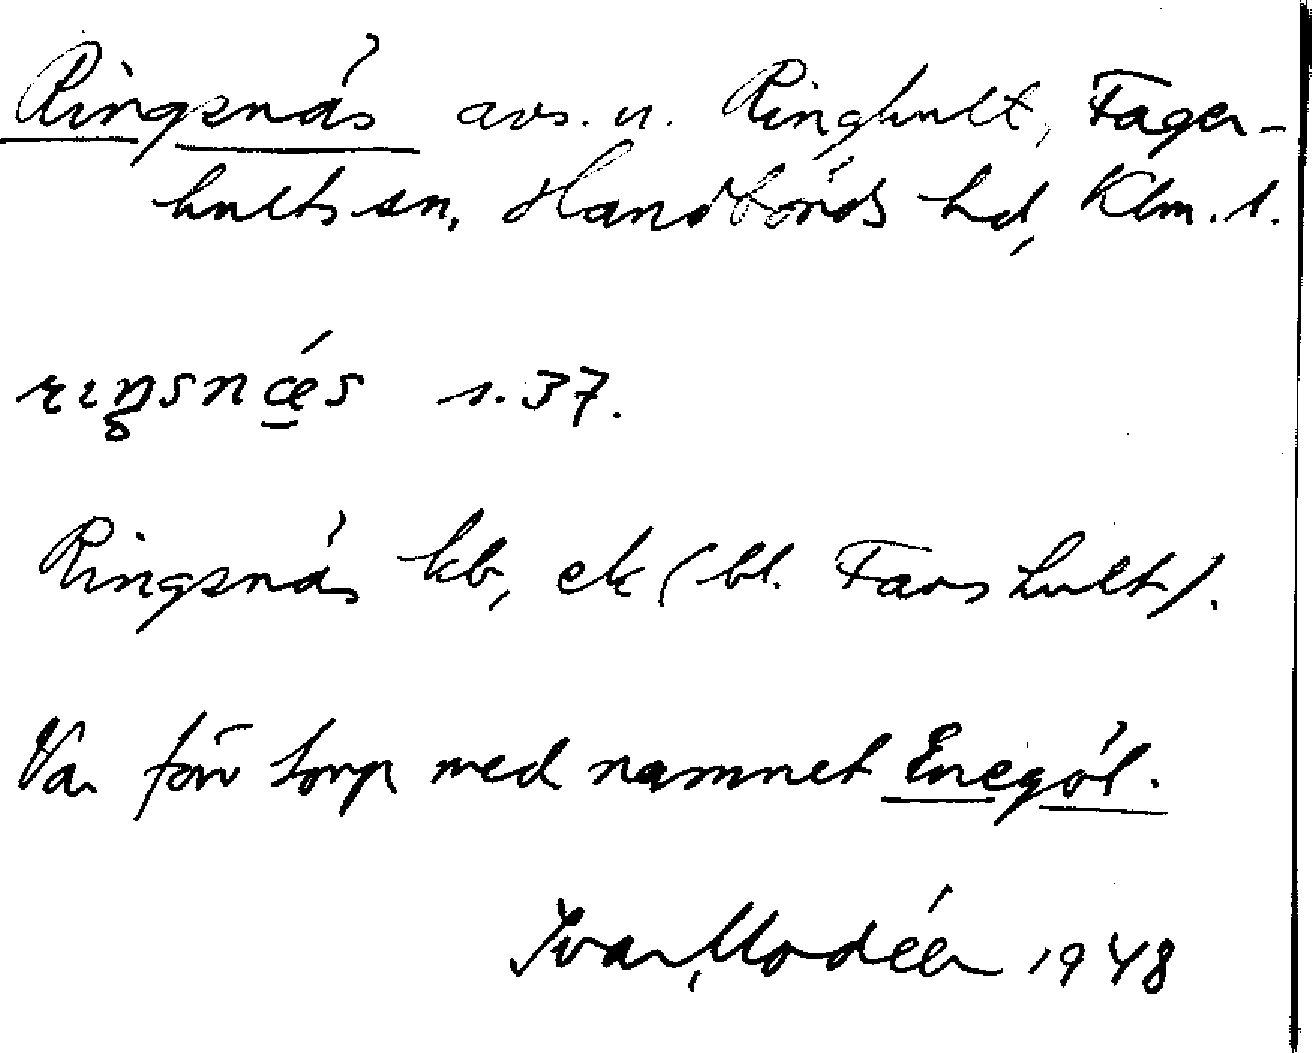 Ringsnäs avs. u. Ringhult, Fager-
hults sn, Handbörds hd, Klm. l.
rıŋsnǽs s. 37.
Ringsnäs kb, ek (bl. Farshult).
Var förr torp med namnet Enegöl.
Ivar Modéer 1948